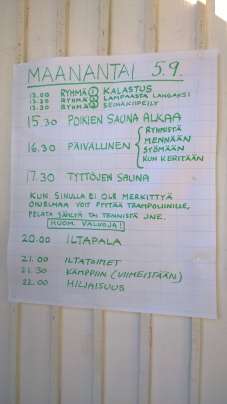 MAANANTAI 5.9.
13.00 RYHMÄ 1 KALASTUS
13.30 RYHMÄ 2 LAMPAASTA LANGAKSI
13.30 RYHMÄ 3 SEINÄKIIPEILY
15.30 POIKIEN SAUNA ALKAA
16.30 PÄIVÄLLINEN { RYHMISTÄ
MENNÄÄN
SYÖMÄÄN
KUN KERITÄÄN
17.30 TYTTÖJEN SAUNA
KUN SINULLA EI OLE MERKITTYÄ
OHJELMAA VOIT PYYTÄÄ TRAMPOLIINILLE,
PELATA SÄHLYÄ TAI TENNISTÄ JNE.
HUOM. VALVOJA!
20.00 ILTAPALA
21.00 ILTATOIMET
21.30 KÄMPPIIN (VIIMEISTÄÄN)
22.00 HILJAISUUS